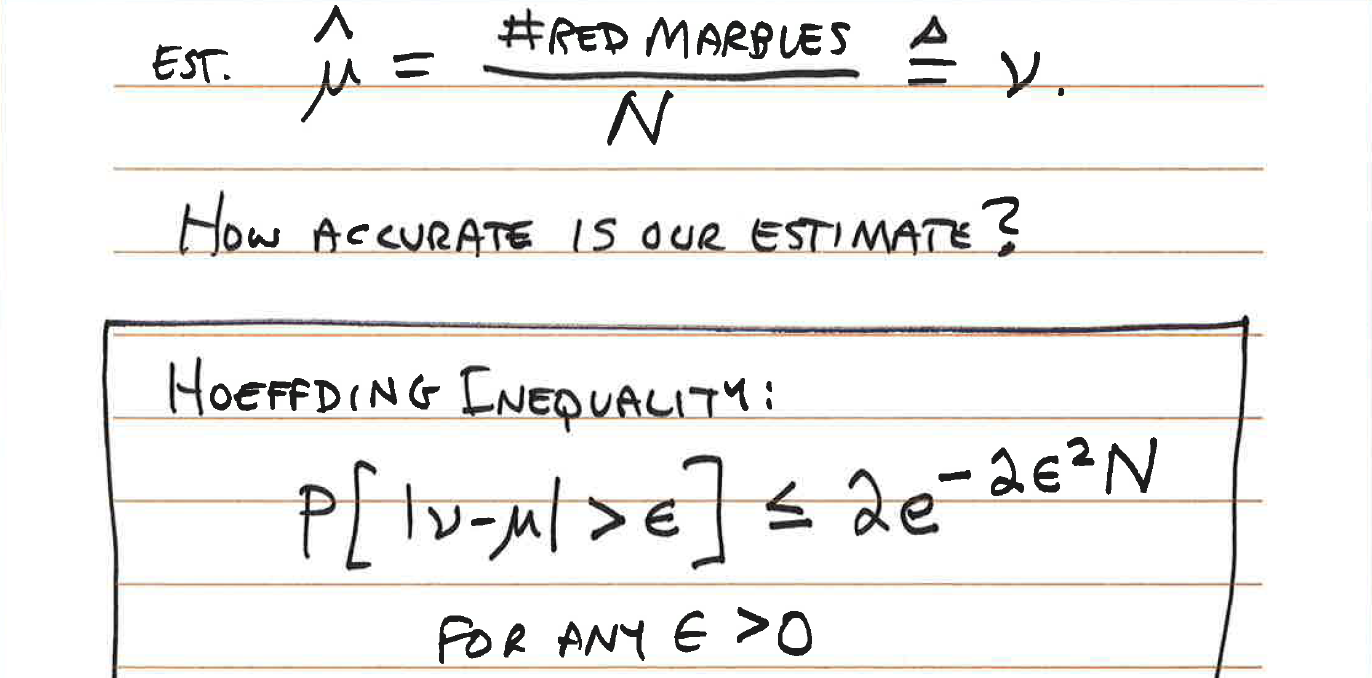 EST. μ̂ = #RED MARBLES / N ≜ ν.
HOW ACCURATE IS OUR ESTIMATE?
HOEFFDING INEQUALITY:
P[|ν-μ|>ϵ] ≤ 2e^{-2ϵ²N}
FOR ANY ϵ >0